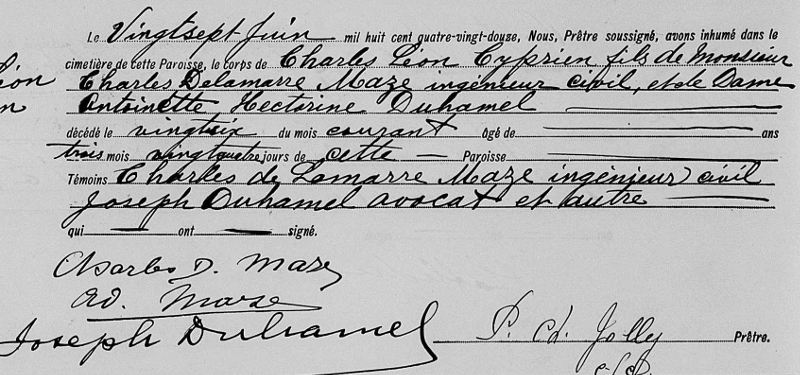 Le Vingtsept Juin mil huit cent quatre-vingt-douze, Nous, Prêtre soussigné, avons inhumé dans le
cimetière de cette Paroisse, le corps de Charles Léon Cyprien fils de Monsieur
Charles Delamarre Maze ingénieur civil, et de Dame
Antoinette Hectorine Duhamel
décédé le vingtsix du mois courant âgé de ans
trois mois vingtquatre jours de cette Paroisse
Témoins Charles de Lamarre Maze ingénieur civil
Joseph Duhamel avocat et autre
qui ont signé.
Charles D. Maze
Ad. Marse
Joseph Duhamel
P. Cd. Jolly Prêtre.